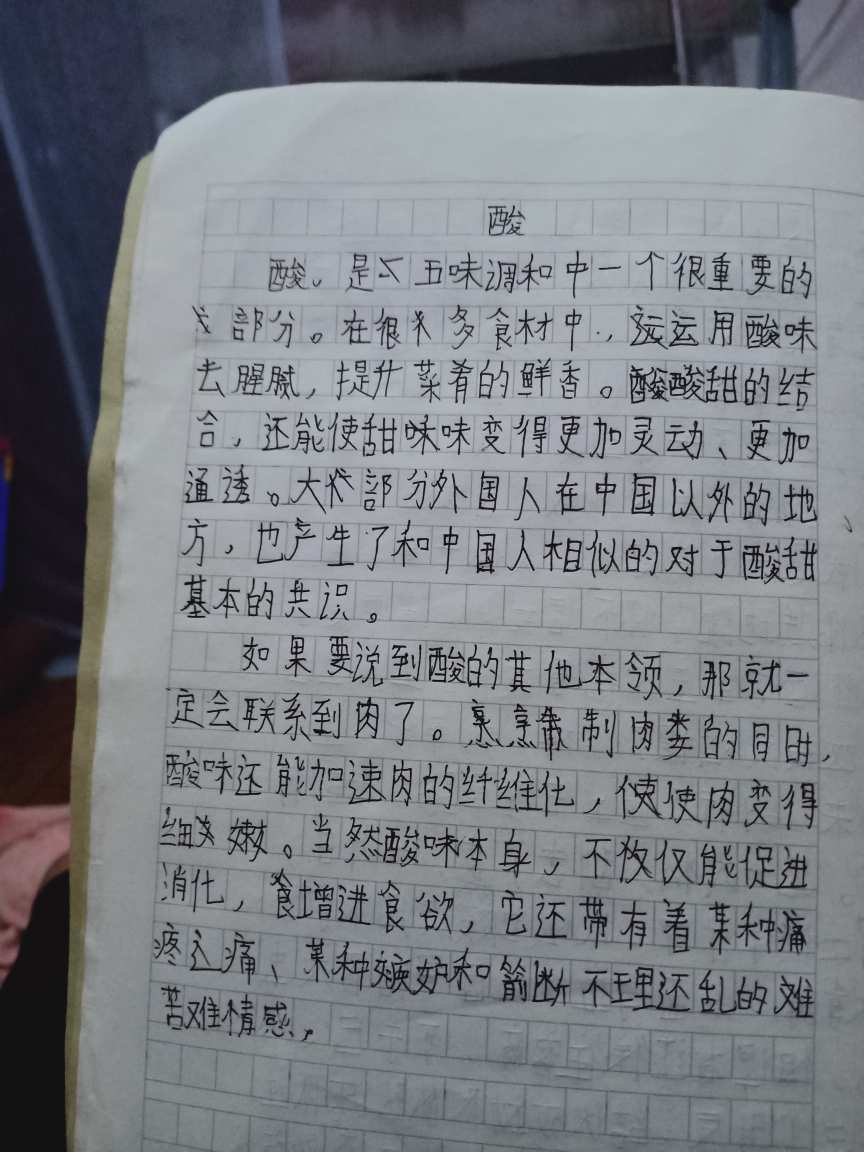 酸
酸。是五味调和中一个很重要的
部分。在很多食材中,运用酸味
去腥腻,提升菜肴的鲜香。酸酸甜的结
合,还能使甜味变得更加灵动、更加
通透。大部分外国人在中国以外的地
方,也产生了和中国人相似的对于酸甜
基本的共识。
如果要说到酸的其他本领,那就一
定会联系到肉了。烹制肉类的同时,
酸味还能加速肉的纤维化,使肉变得
细嫩。当然酸味本身,不仅能促进
消化,增进食欲,它还带有着某种痛
疼痛、某种嫉妒和剪断不理还乱的难
苦难情感,